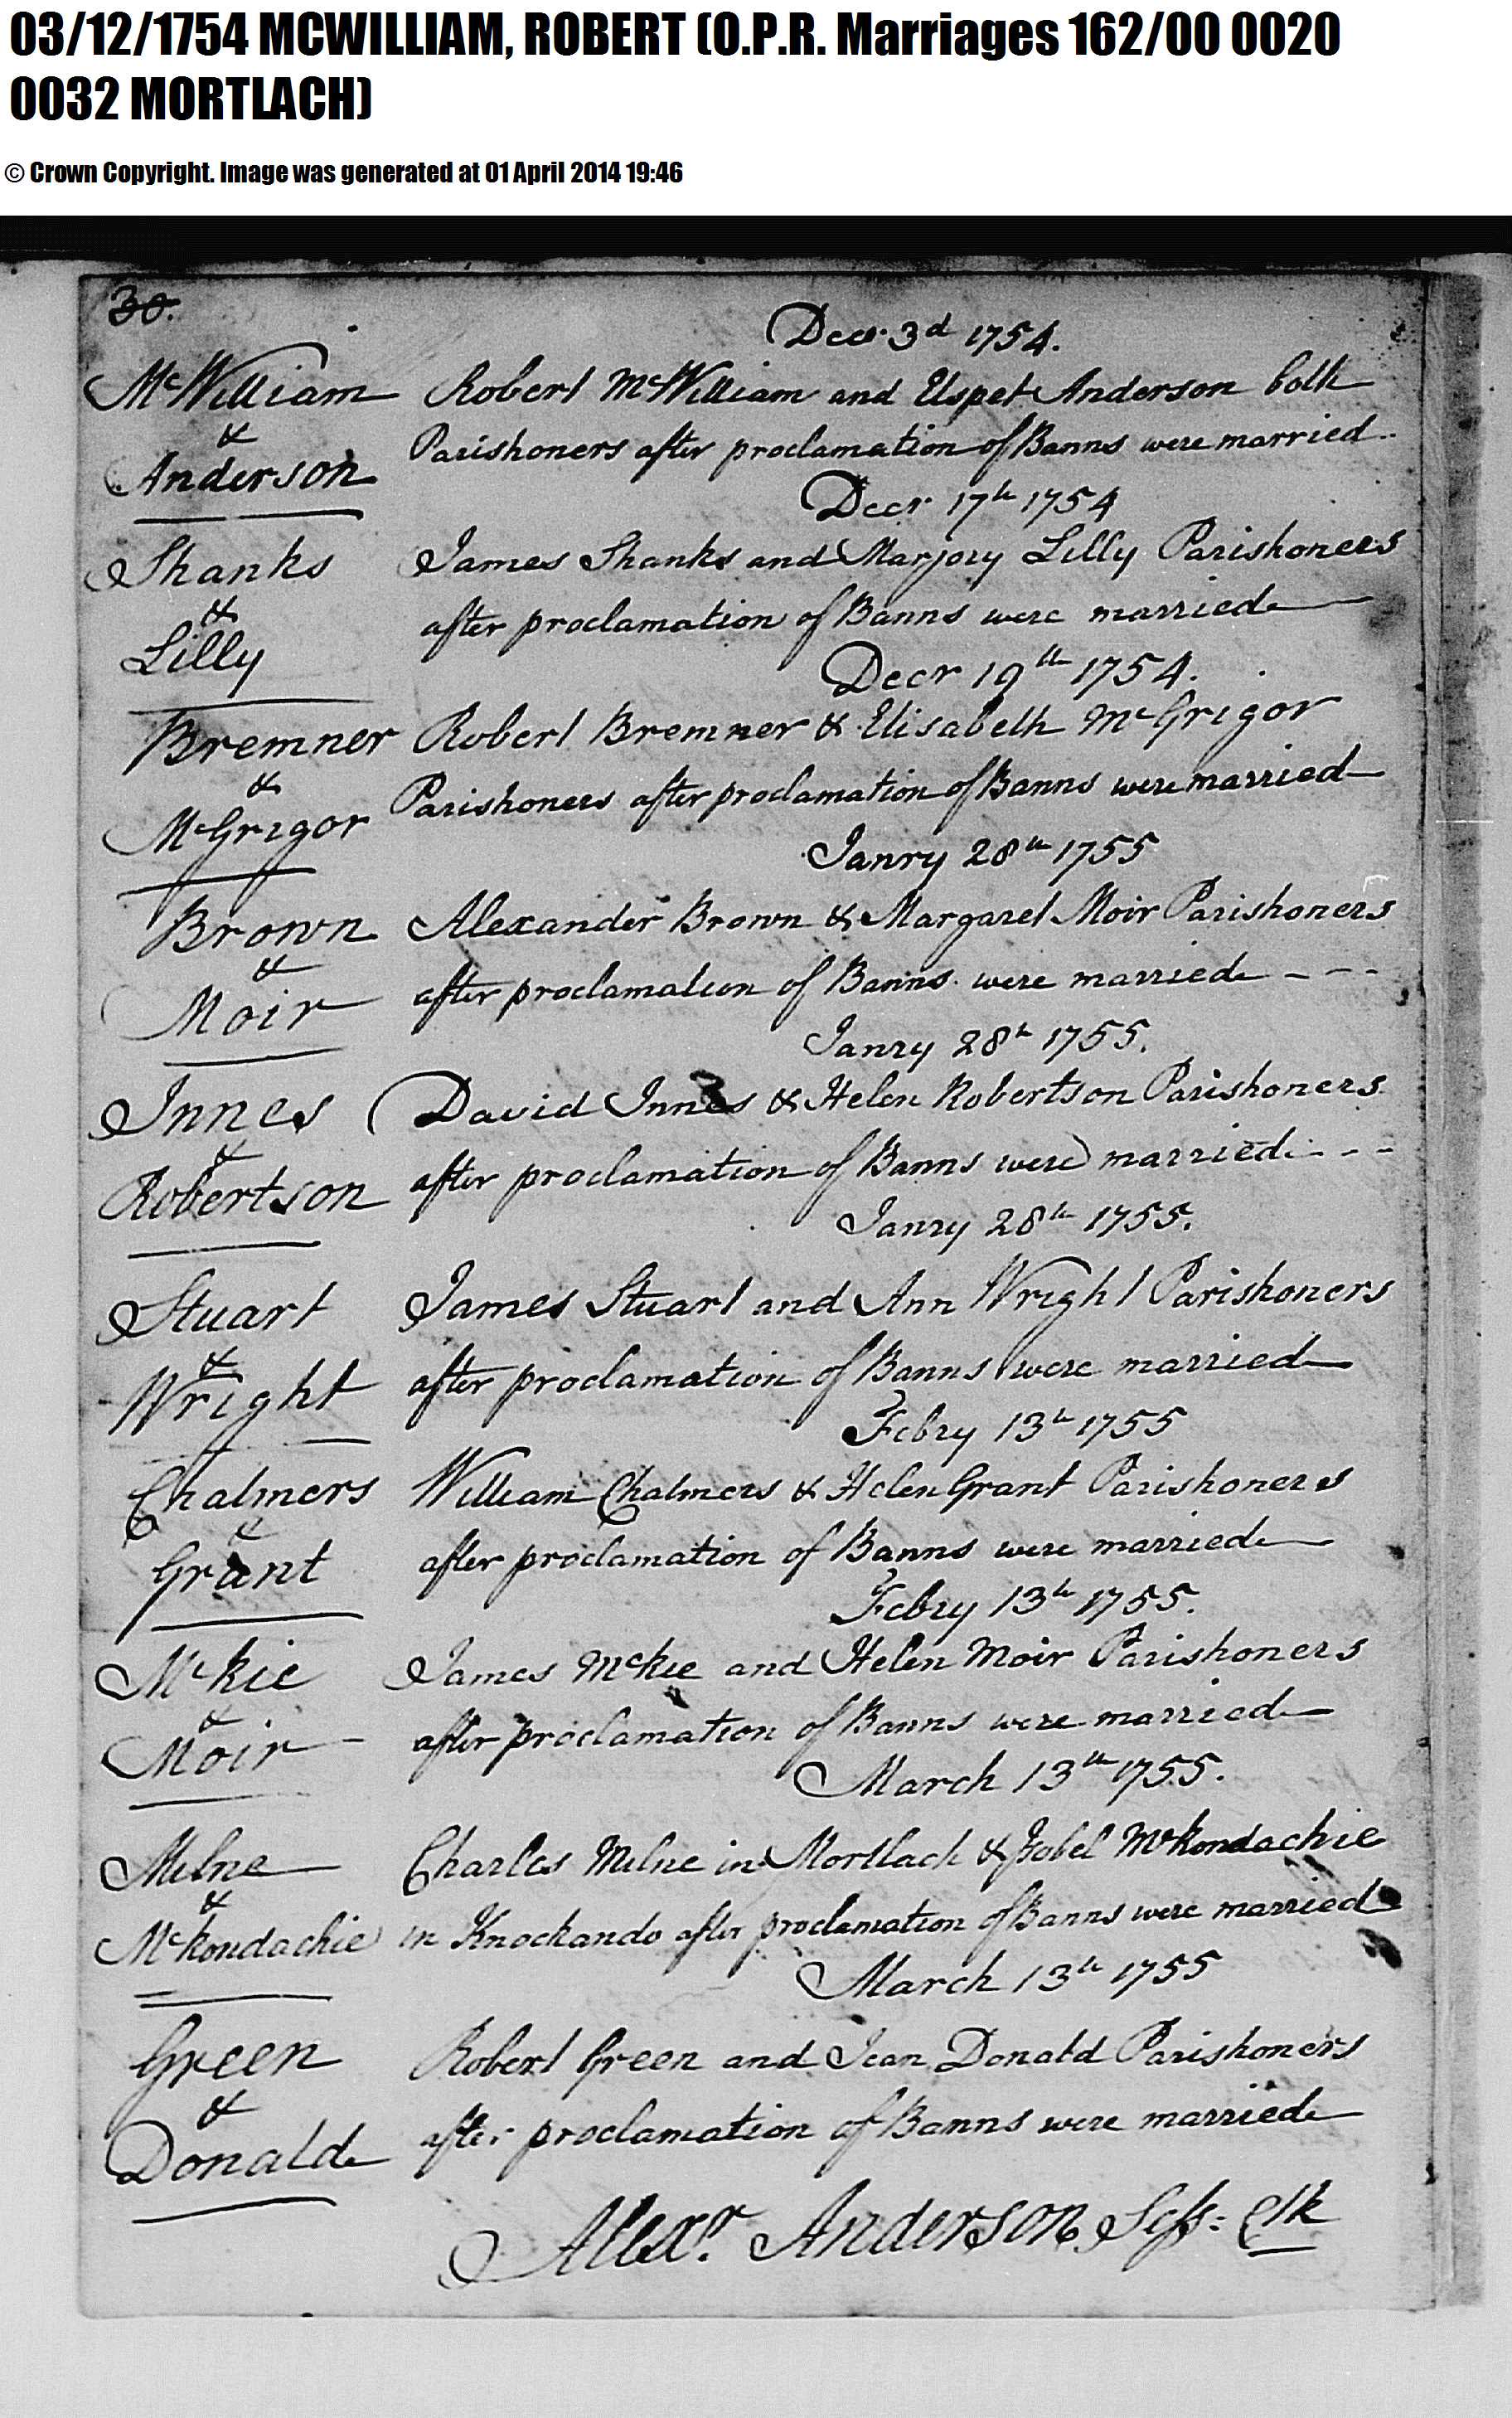 03/12/1754 MCWILLIAM, ROBERT (O.P.R. Marriages 162/00 0020
0032 MORTLACH)
© Crown Copyright. Image was generated at 01 April 2014 19:46
30.
Decr. 3d 1754.
McWilliam
&
Anderson
Robert McWilliam and Elspet Anderson both
Parishoners after proclamation of Banns were married
Decr 17th 1754
Shanks
&
Lilly
James Shanks and Marjory Lilly Parishoners
after proclamation of Banns were married
Decr 19th 1754.
Bremner
&
McGrigor
Robert Bremner & Elisabeth McGrigor
Parishoners after proclamation of Banns were married
Janry 28th 1755
Brown
&
Moir
Alexander Brown & Margaret Moir Parishoners
after proclamation of Banns were married - - -
Janry 28th 1755.
Innes
&
Robertson
David Innes & Helen Robertson Parishoners
after proclamation of Banns were married - - -
Janry 28th 1755.
Stuart
&
Wright
James Stuart and Ann Wright Parishoners
after proclamation of Banns were married
Febry 13th 1755
Chalmers
&
Grant
William Chalmers & Helen Grant Parishoners
after proclamation of Banns were married
Febry 13th 1755.
McKie
&
Moir
James McKie and Helen Moir Parishoners
after proclamation of Banns were married
March 13th 1755.
Milne
&
McKondachie
Charles Milne in Mortlach & Isobel McKondachie
in Knockando after proclamation of Banns were married
March 13th 1755
Green
&
Donald
Robert Green and Jean Donald Parishoners
after proclamation of Banns were married
Alexr. Anderson Sess: Clk